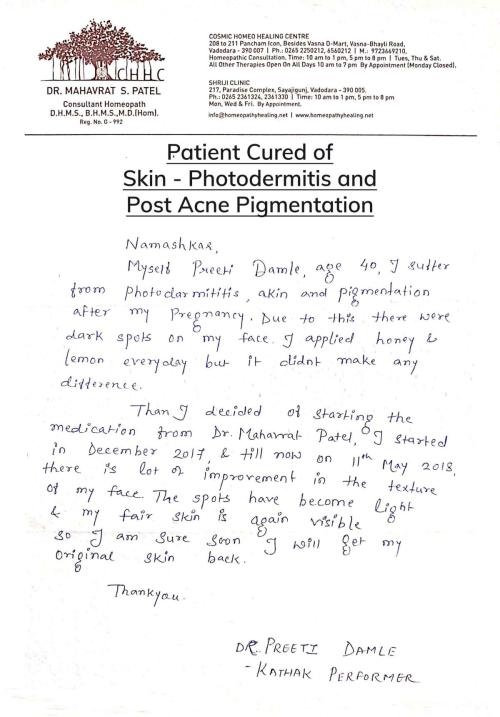 CHHC
DR. MAHAVRAT S. PATEL
Consultant Homeopath
D.H.M.S., B.H.M.S.,M.D.(Hom).
Reg. No. G - 992
COSMIC HOMEO HEALING CENTRE
208 to 211 Pancham Icon, Besides Vasna D-Mart, Vasna-Bhayli Road,
Vadodara - 390 007 | Ph.: 0265 2250212, 6560212 | M.: 9723669210,
Homeopathic Consultation. Time: 10 am to 1 pm, 5 pm to 8 pm | Tues, Thu & Sat.
All Other Therapies Open On All Days 10 am to 7 pm By Appointment (Monday Closed).
SHRIJI CLINIC
217, Paradise Complex, Sayajigunj, Vadodara - 390 005.
Ph.: 0265 2361324, 2361330 | Time: 10 am to 1 pm, 5 pm to 8 pm
Mon, Wed & Fri. By Appointment.
info@homeopathyhealing.net | www.homeopathyhealing.net
Patient Cured of
Skin - Photodermitis and
Post Acne Pigmentation
Namashkar,
Myself Preeti Damle, age 40, I suffer
from photodarmititis, akin and pigmentation
after my Pregnancy. Due to this there were
dark spots on my face. I applied honey &
lemon everyday but it didnt make any
difference.
Than I decided of starting the
medication from Dr. Mahavrat Patel, I started
in December 2017, & till now on 11th May 2018,
there is lot of improvement in the texture
of my face. The spots have become light
& my fair skin is again visible
so I am sure soon I will get my
original skin back.
Thankyou.
DR. PREETI DAMLE
- KATHAK PERFORMER